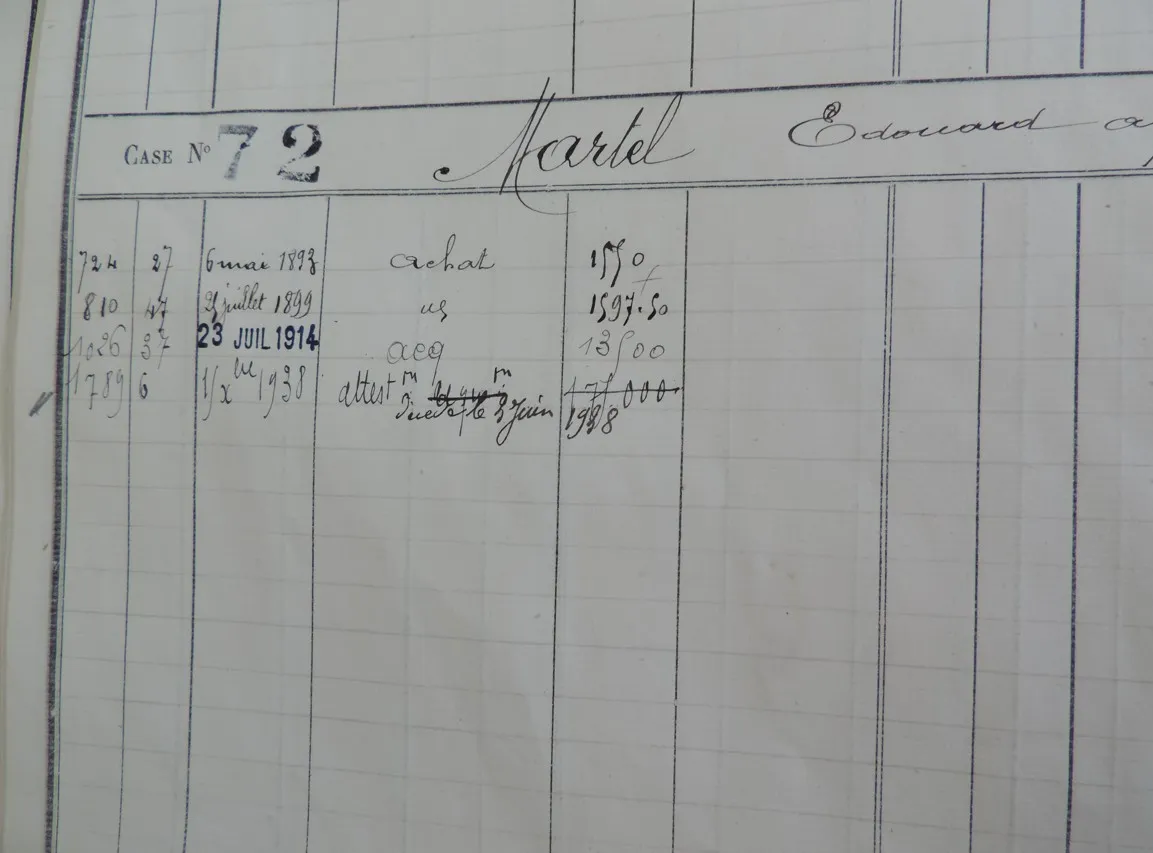 CASE Nº 72 Martel Edouard
724 27 6 mai 1893 achat 1550
810 47 juillet 1899 1597.50
1026 37 23 JUIL 1914 acq 13500
1789 6 1938 attest on
le 3 Juin 1938